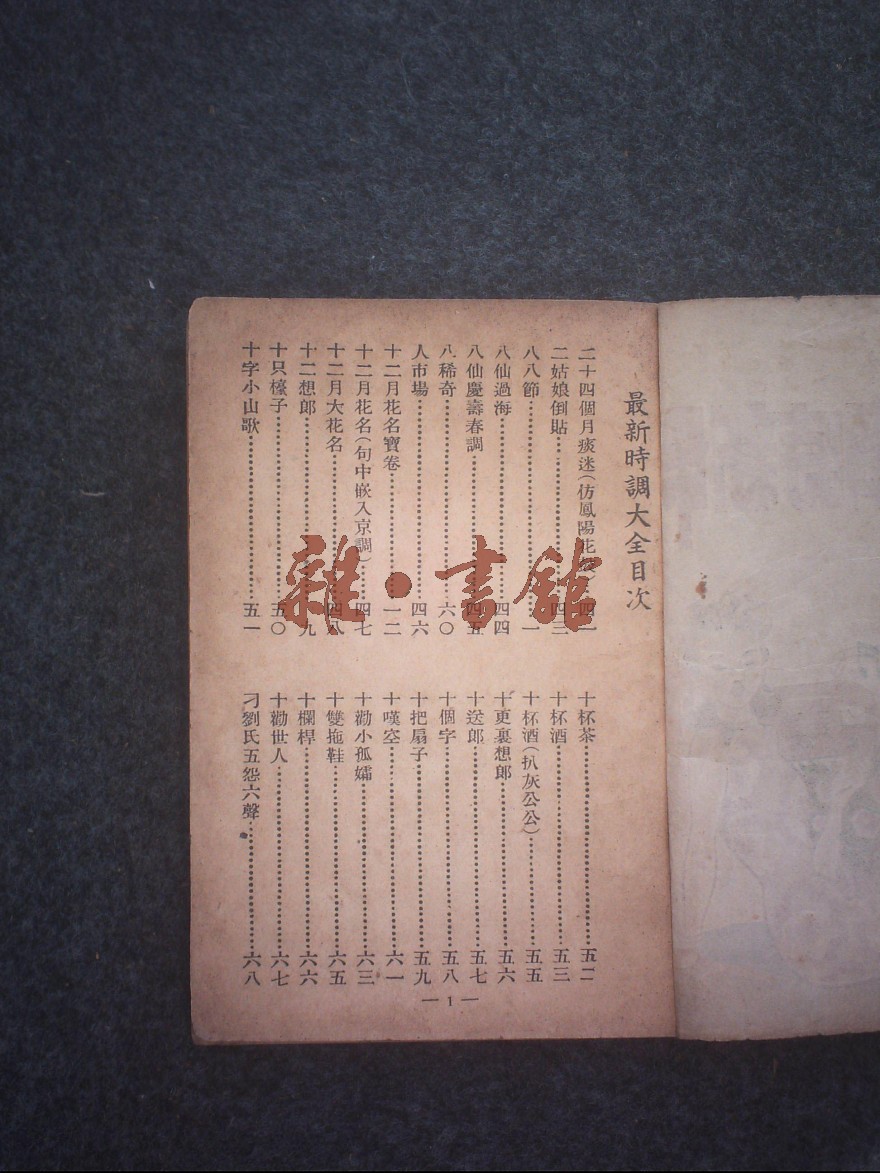 最新時調大全目次
二十四個月痰迷(仿鳳陽花鼓)……四一
二姑娘倒貼……四三
八八節……一
八仙過海……四四
八仙慶壽春調……四五
八稀奇……六〇
人市場……四六
十二月花名寶卷……一二
十二月花名(句中嵌入京調)……四七
十二月大花名……四八
十二想郎……九
十只檯子……五〇
十字小山歌……五一
十杯茶……五二
十杯酒……五三
十杯酒(扒灰公公)……五五
十更裏想郎……五六
十送郎……五七
十個字……五八
十把扇子……五九
十嘆空……六一
十勸小孤孀……六三
十雙拖鞋……六五
十欄桿……六六
十勸世人……六七
刁劉氏五怨六聲……六八
—1—
雜·書館